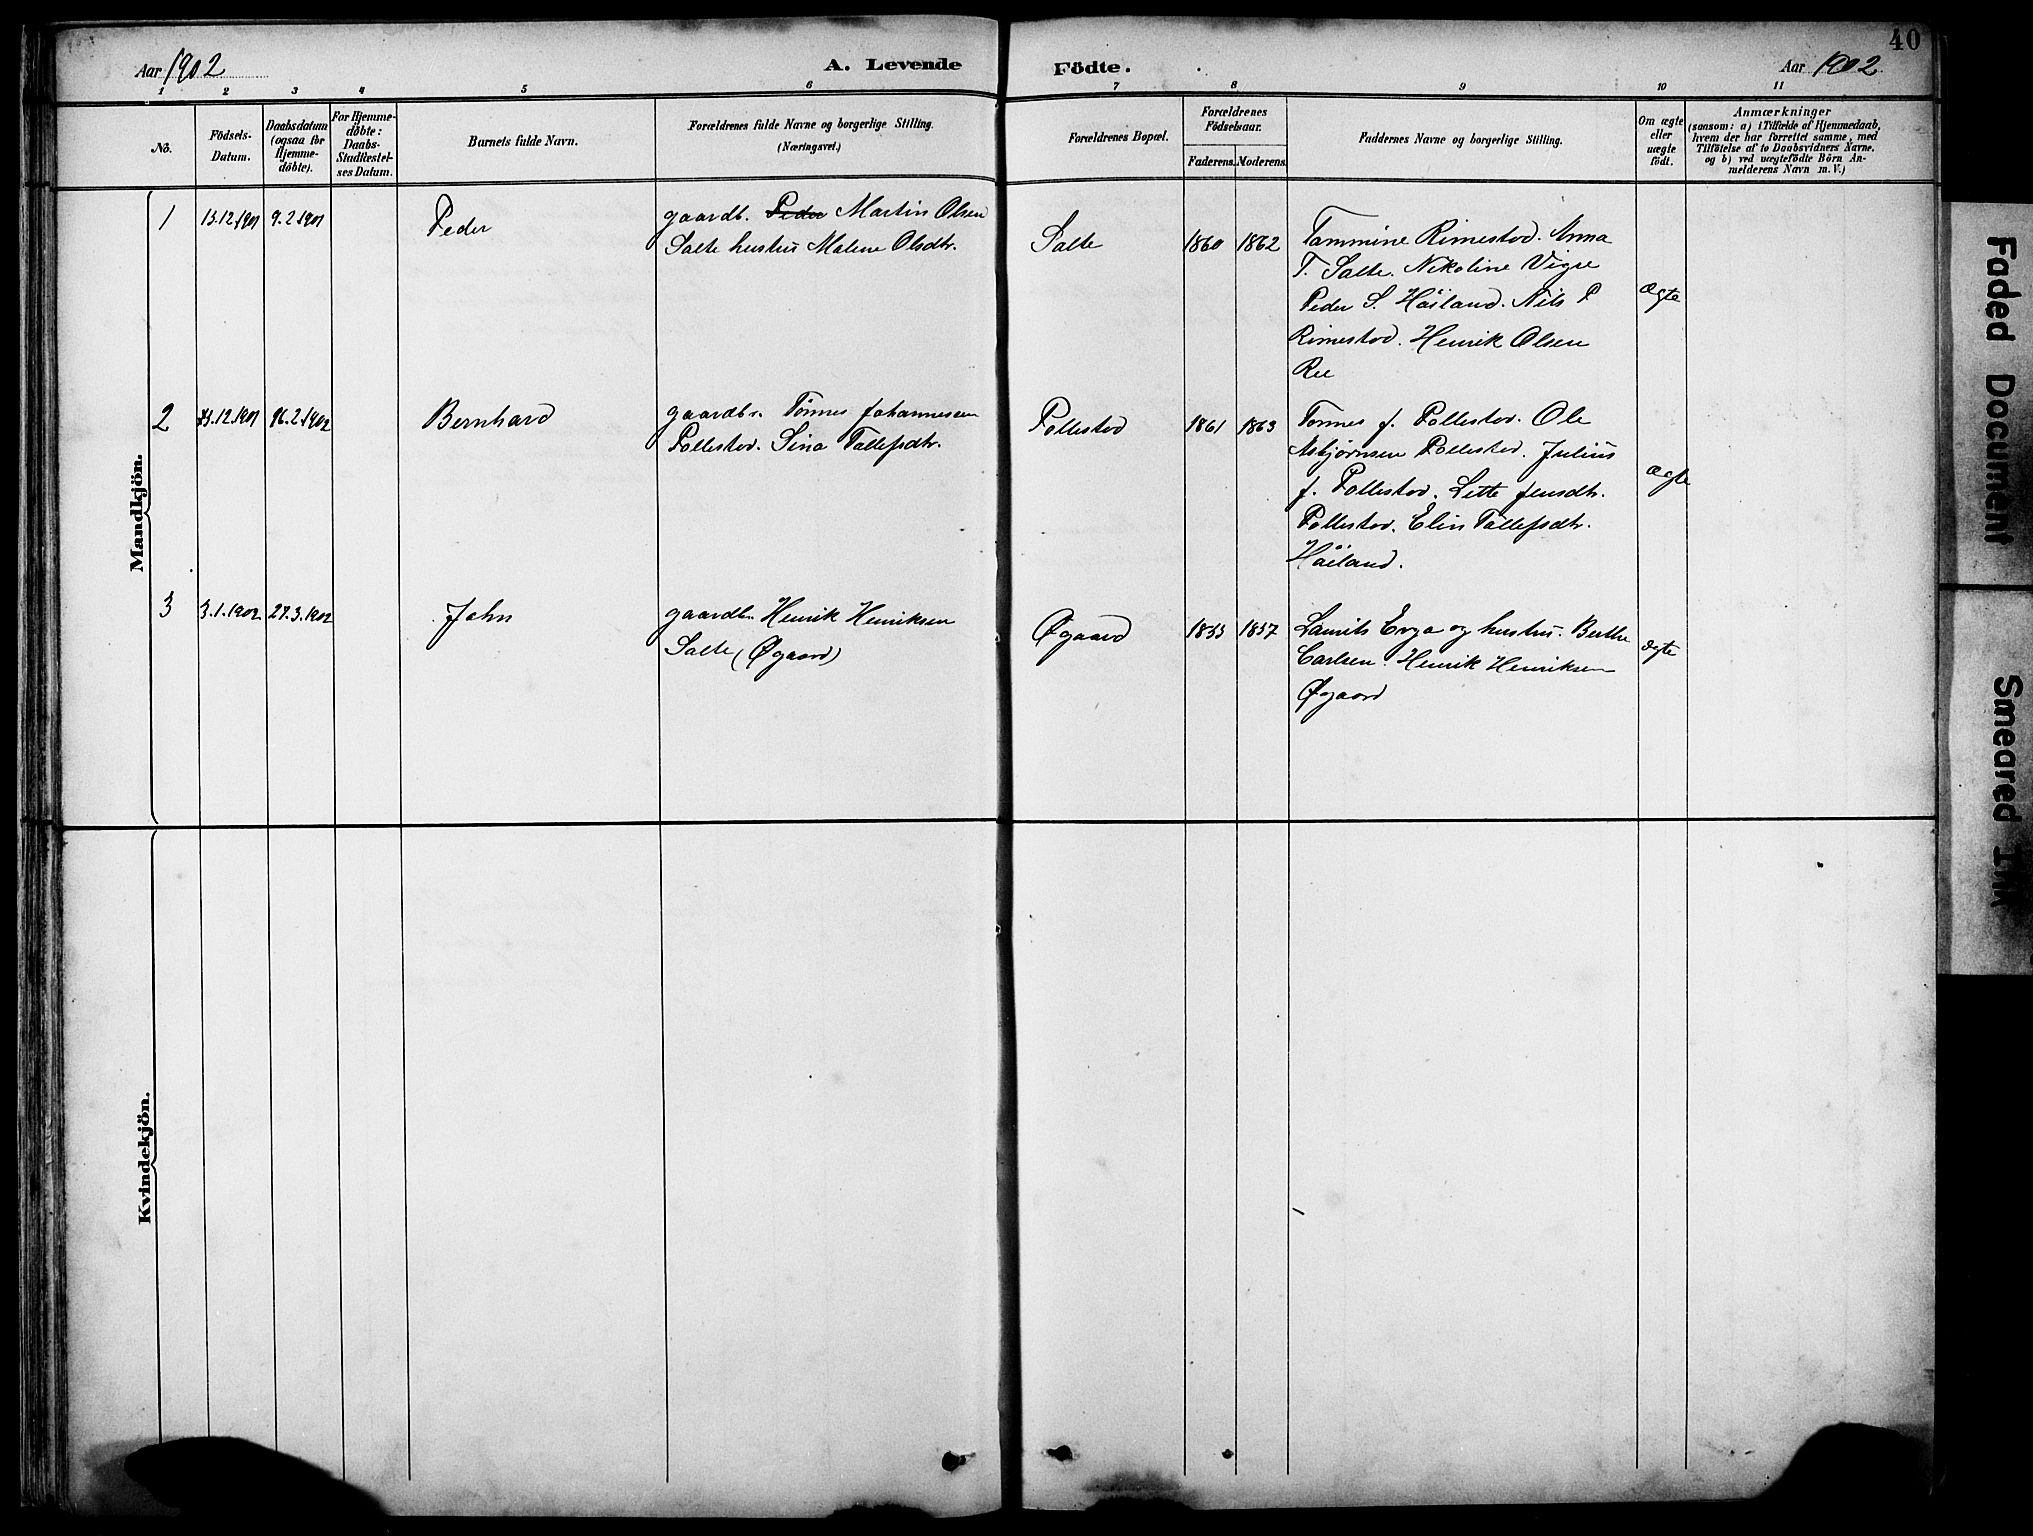 40
Aar 1902
A. Levende Födte.
Aar 1902
1 2 3 4 5 6 7 8 9 10 11
No.
Födsels-
Datum.
Daabsdatum
(ogsaa for
Hjemme-
döbte).
For Hjemme-
döbte:
Daabs-
Stadfæstel-
ses Datum.
Barnets fulde Navn.
Forældrenes fulde Navne og borgerlige Stilling.
(Næringsvei.)
Forældrenes Bopæl.
Forældrenes
Födselsaar.
Faderens. Moderens.
Faddernes Navne og borgerlige Stilling.
Om ægte
eller
uægte
födt.
Anmærkninger
(saasom: a) i Tilfælde af Hjemmedaab,
hvem der har forrettet samme, med
Tilföielse af to Daabsvidners Navne,
og b) ved uægtefödte Börn An-
melderens Navn m. V.)
Mandkjön.
1 13.12.1901 9.2.1901 Peder
gaardb. Peder Martin Olsen
Salte hustru Malene Olsdtr.
Salte 1860 1862
Tammine Rimestad. Anna
T. Salte. Nikoline Vigre
Peder S. Håiland. Nils P
Rimestad. Henrik Olsen
Ree
ægte
2 23.12.1901 16.2.1902 Bernhard
gaardbr. Tönnes Johannesen
Pollestad. Sina Tallefsdtr.
Pollestad 1861 1863
Tönnes J. Pollestad. Ole
Asbjørnsen Pollestad. Julius
J. Pollestad. Lette Jensdtr.
Pollestad. Elin Tallefsdtr.
Håiland.
ægte
3 3.1.1902 27.3.1902 John
gaardbr. Henrik Henriksen
Salte (Øgaard)
Øgaard 1855 1857
Laurits Erga og hustru. Berthe
Carlsen. Henrik Henriksen
Øgaard
ægte
Kvindekjön.
Faded Document
Smeared Ink